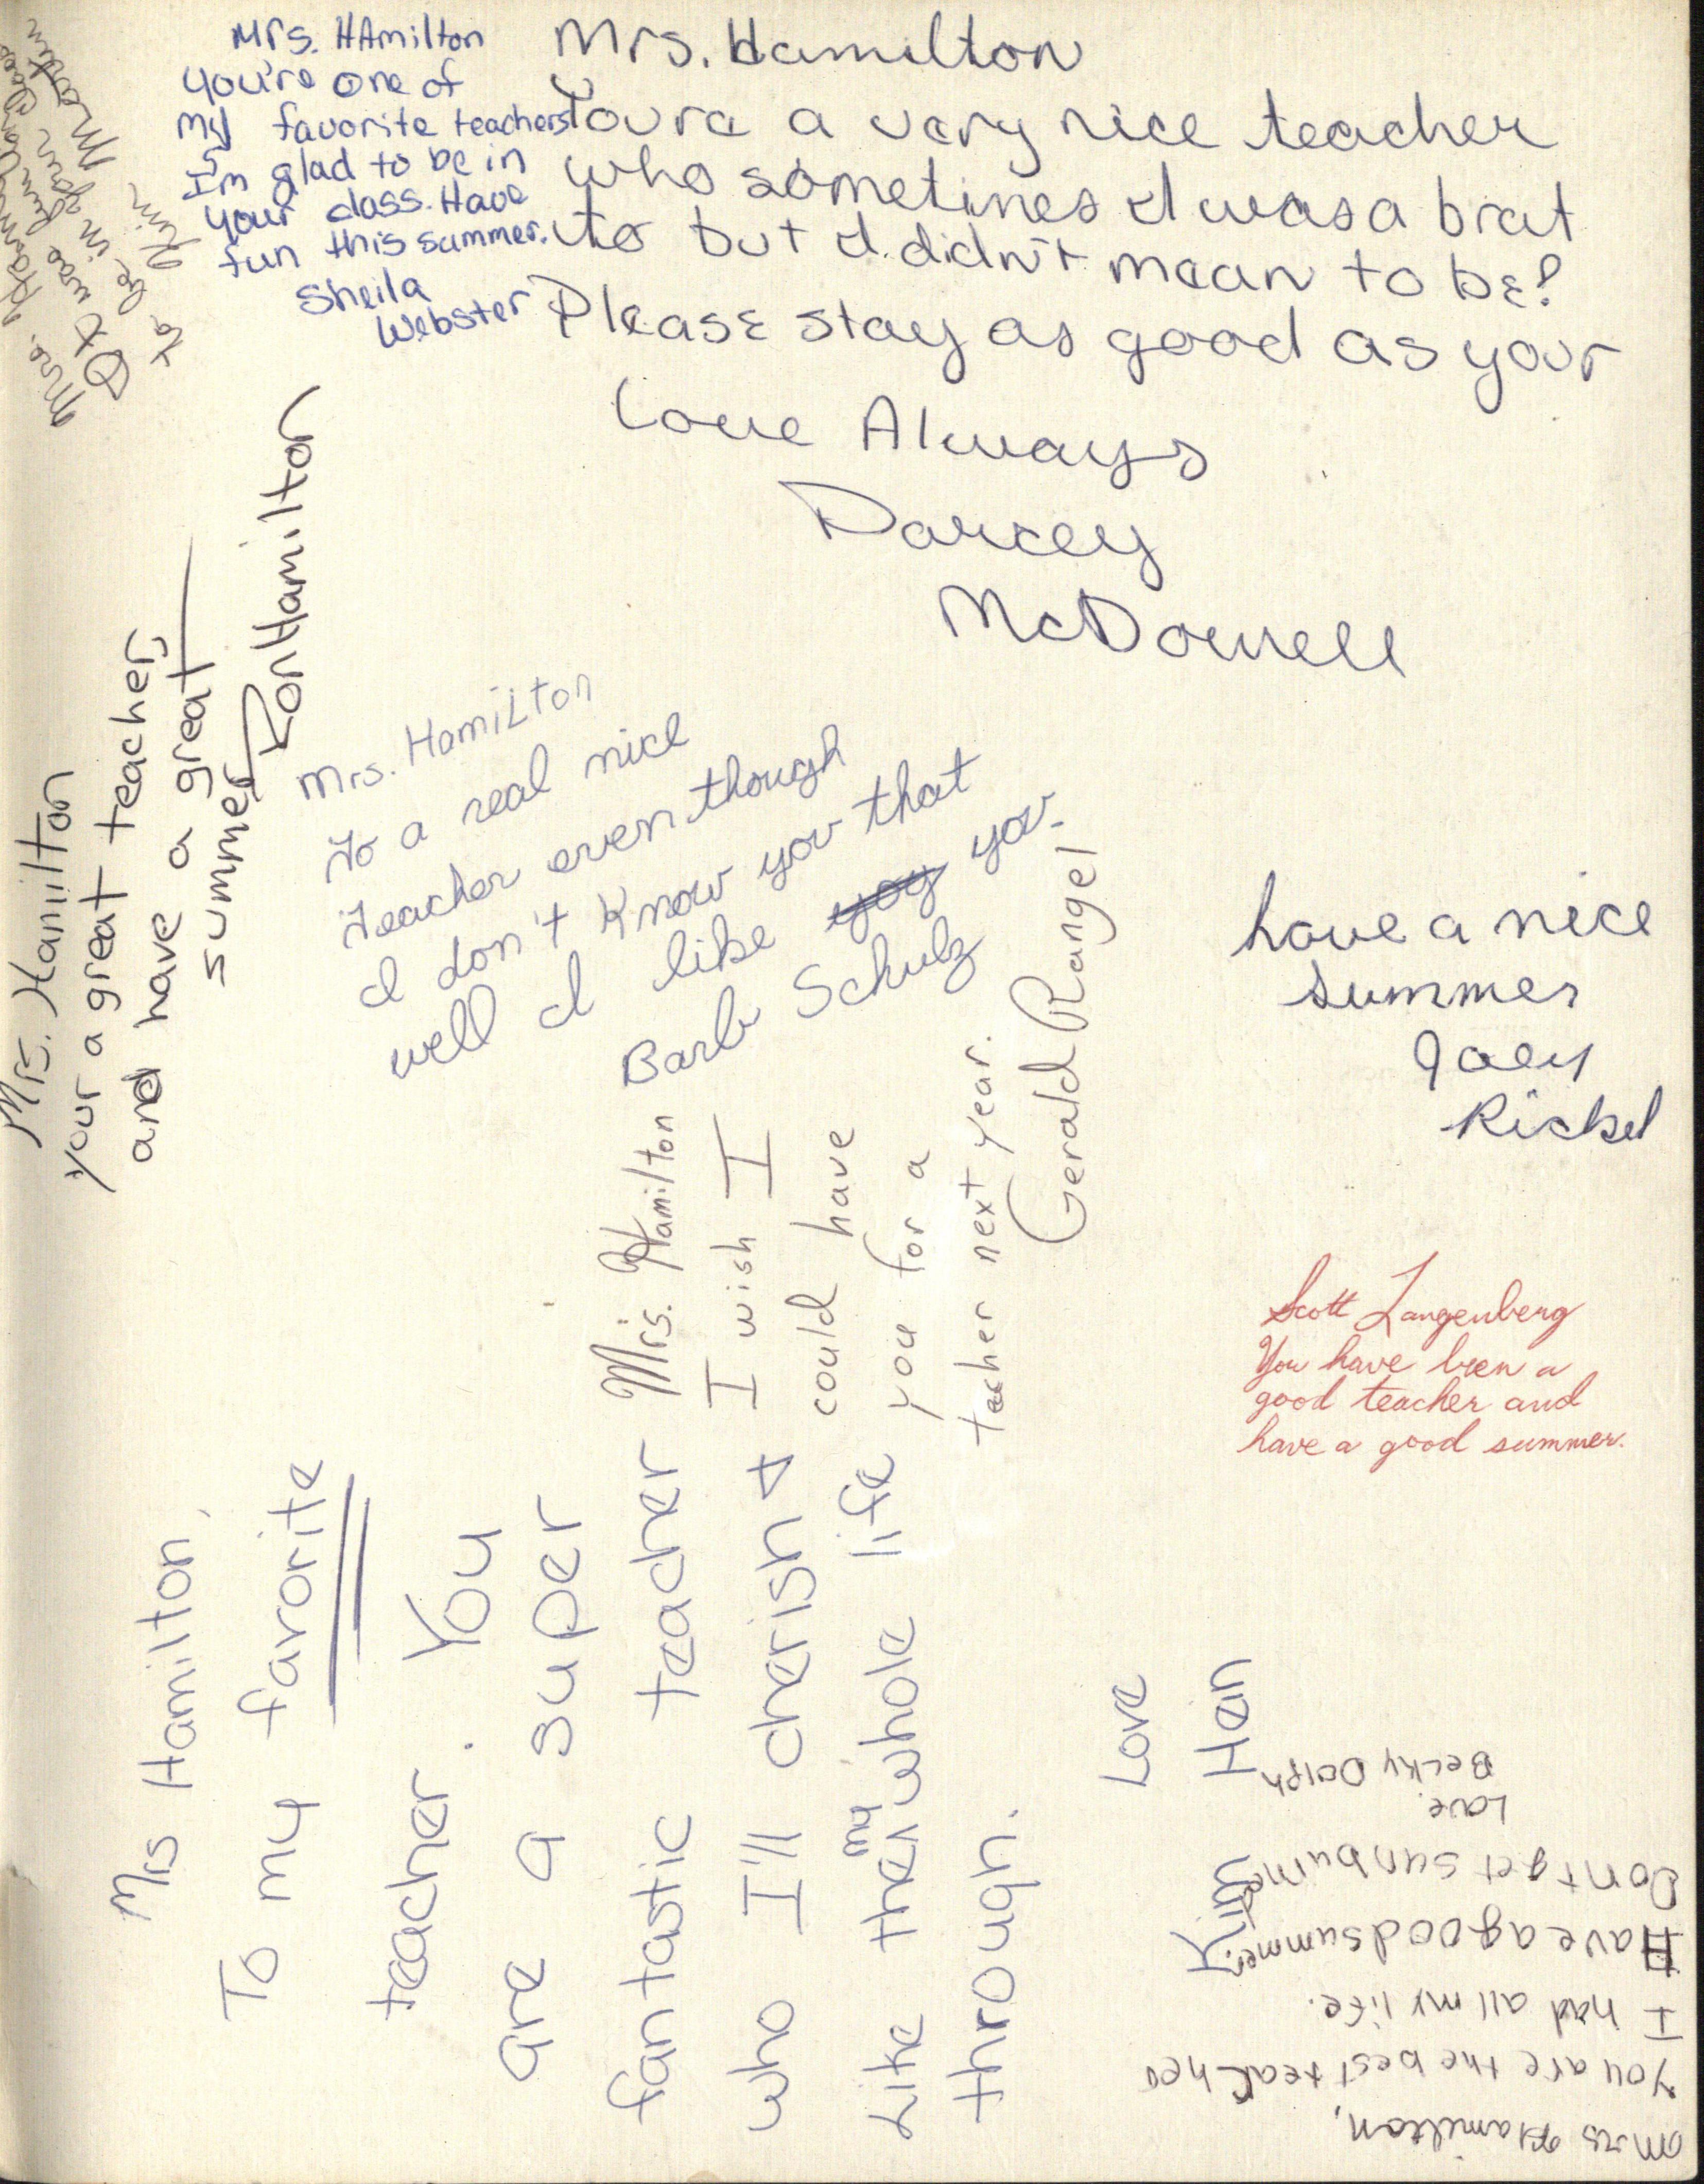 Mrs. Hamilton
It was fun
to be in your
Kim Martin
Mrs. HAmilton
You're one of
my favorite teachers
I'm glad to be in
your class. Have
fun this summer.
Sheila
Webster
Mrs. Hamilton
Youre a very nice teacher
who sometimes I was a brat
to but I didn't mean to be!
Please stay as good as your
Love Always
Darcey
McDowell
Mrs. Hamilton
your a great teacher
and have a great
summer
Ron Hamilton
Mrs. Hamilton
to a real nice
teacher even though
I don't know you that
well I like you you.
Barb Schulz
Mrs. Hamilton
I wish I
could have
you for a
teacher next year.
Gerald Rangel
have a nice
summer
Joey
Rickel
Scott Langenberg
You have been a
good teacher and
have a good summer.
Mrs Hamilton,
To my favorite
teacher. You
are a super
fantastic teacher
who I'll cherish &
like then my whole life
through.
Love
Kim Hen
Mrs Hamilton,
You are the best teacher
I had all my life.
Have a good summer.
Dont get sunburned
Love,
Becky Dolph